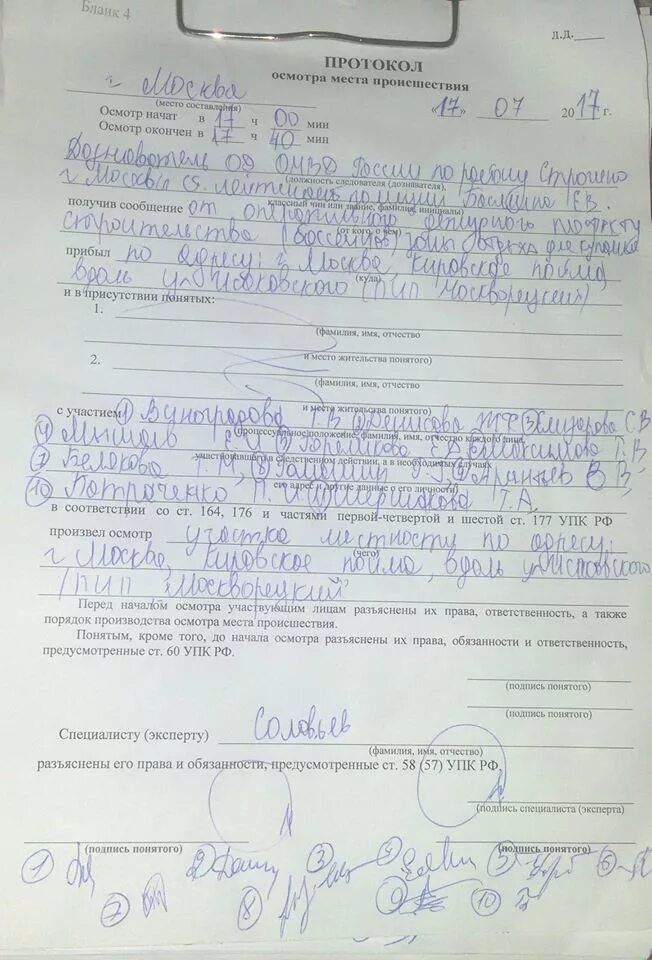 Бланк 4
Л.Д.
ПРОТОКОЛ
осмотра места происшествия
г Москва
(место составления)
«17» 07 2017 г.
Осмотр начат в 17 ч 00 мин
Осмотр окончен в 17 ч 40 мин
Дознаватель ОД ОМВД России по району Строгино
(должность следователя (дознавателя),
г Москвы лейтенант полиции
классный чин или звание, фамилия, инициалы)
получив сообщение от оперативного дежурного по факту
(от кого, о чем)
строительства зоны отдыха для
прибыл по адресу: г Москва Кировское пойма
(куда)
вдоль ул Исаковского (ПИП Москворецкий)
и в присутствии понятых:
1.
(фамилия, имя, отчество
и место жительства понятого)
2.
(фамилия, имя, отчество
и место жительства понятого)
с участием 1 Виноградова В 2 Денисова 3 С В
(процессуальное положение, фамилия, имя, отчество каждого лица,
4 Мышов 6 Максимова Т. В
участвовавшего в следственном действии, а в необходимых случаях
7 Белякова 8 9 В В
его адрес и другие данные о его личности)
10 Петраченко П. Т. А.
в соответствии со ст. 164, 176 и частями первой-четвертой и шестой ст. 177 УПК РФ
произвел осмотр участка местности по адресу:
(чего)
г Москва, Кировское пойма, вдоль ул Исаковского
/ПИП "Москворецкий"
Перед началом осмотра участвующим лицам разъяснены их права, ответственность, а также
порядок производства осмотра места происшествия.
Понятым, кроме того, до начала осмотра разъяснены их права, обязанности и ответственность,
предусмотренные ст. 60 УПК РФ.
(подпись понятого)
(подпись понятого)
Специалисту (эксперту) Соловьев
(фамилия, имя, отчество)
разъяснены его права и обязанности, предусмотренные ст. 58 (57) УПК РФ.
(подпись специалиста (эксперта)
(подпись понятого) (подпись понятого)
1 2 3 5 6
7 8 9 10